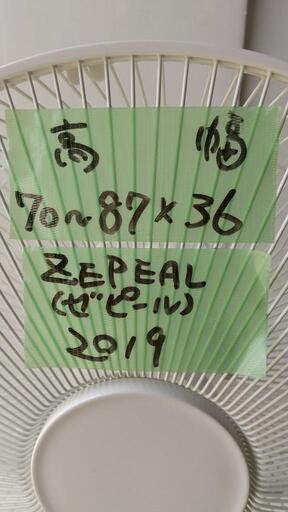 高 幅
70~87×36
ZEPEAL
(ゼピール)
2019